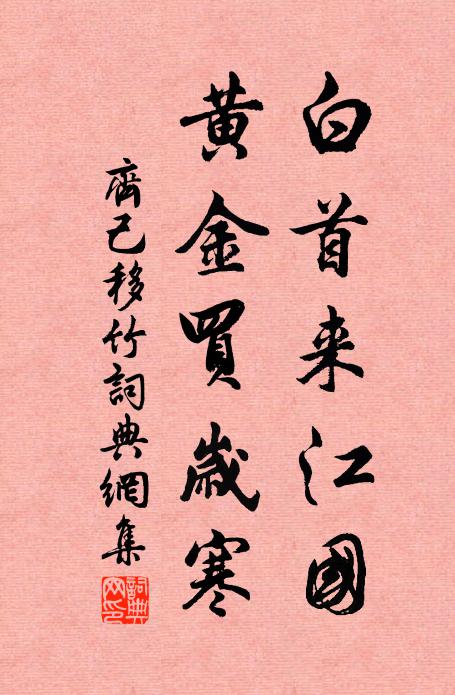 白首来江國
黄金買歳寒
齊己移竹詞典網集
詞典網印